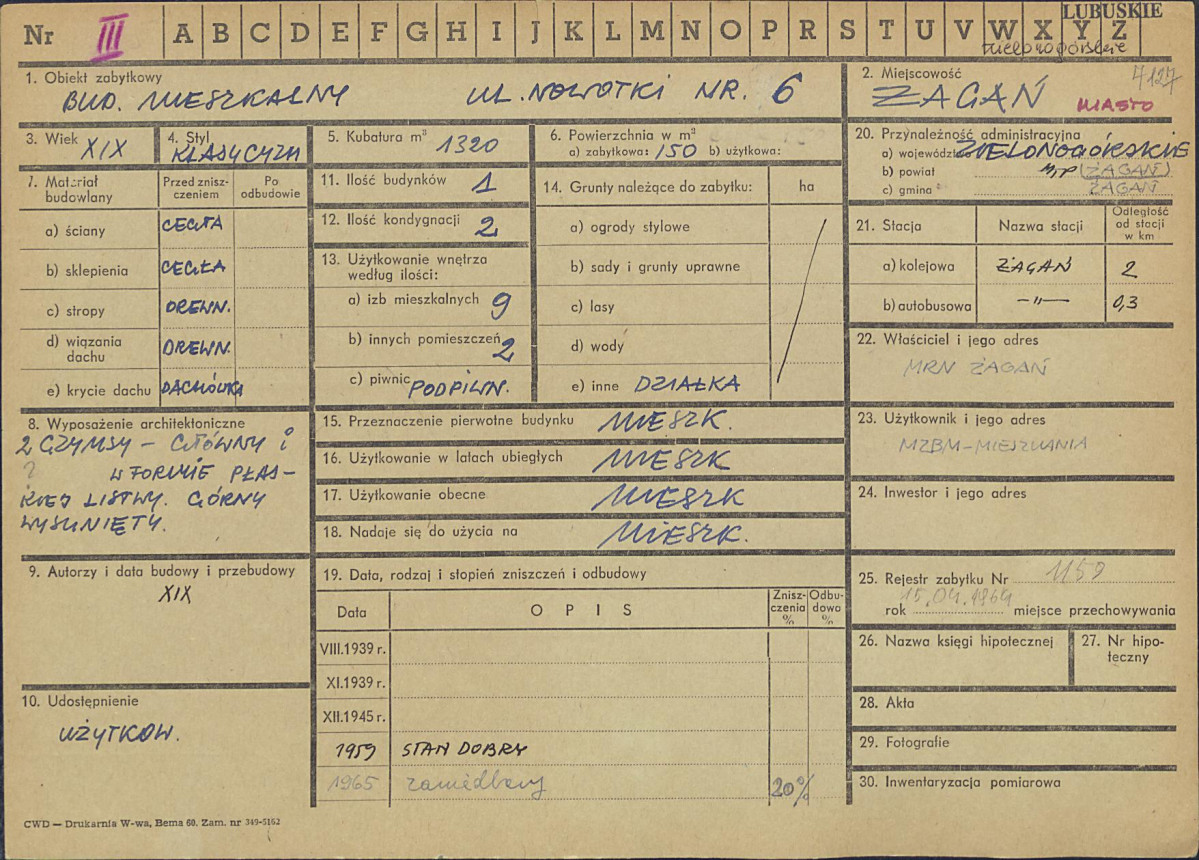 LUBUSKIE
Nr III A B C D E F G H I J K L M N O P R S T U V W X Y Z
zielonogórskie
1. Obiekt zabytkowy
BUD. MIESZKALNY UL. NOWOTKI NR. 6
2. Miejscowość 7127
ŻAGAŃ MIASTO
3. Wiek XIX
4. Styl
KLASYCYZM
5. Kubatura m³ 1320
6. Powierzchnia w m²
a) zabytkowa: 150 b) użytkowa:
20. Przynależność administracyjna
a) województwo ZIELONOGÓRSKIE
b) powiat (ŻAGAŃ)
c) gmina ŻAGAŃ
7. Materiał budowlany
Przed znisz-
czeniem
Po
odbudowie
a) ściany CEGŁA
b) sklepienia CEGŁA
c) stropy DREWN.
d) wiązania
dachu DREWN.
e) krycie dachu DACHÓWKA
11. Ilość budynków 1
12. Ilość kondygnacji 2
13. Użytkowanie wnętrza
według ilości:
a) izb mieszkalnych 9
b) innych pomieszczeń 2
c) piwnic PODPIWN.
14. Grunty należące do zabytku: ha
a) ogrody stylowe
b) sady i grunty uprawne
c) lasy
d) wody
e) inne DZIAŁKA
21. Stacja Nazwa stacji
Odległość
od stacji
w km
a) kolejowa ŻAGAŃ 2
b) autobusowa —"— 0,3
22. Właściciel i jego adres
MRN ŻAGAŃ
8. Wyposażenie architektoniczne
2 GZYMSY – GŁÓWNY i
? W FORMIE PŁAS-
KIEJ LISTWY. GÓRNY
WYSUNIĘTY.
15. Przeznaczenie pierwotne budynku MIESZK.
16. Użytkowanie w latach ubiegłych MIESZK
17. Użytkowanie obecne MIESZK
18. Nadaje się do użycia na MIESZK.
23. Użytkownik i jego adres
MZBM-MIESZKANIA
24. Inwestor i jego adres
9. Autorzy i data budowy i przebudowy
XIX
10. Udostępnienie
UŻYTKOW.
19. Data, rodzaj i stopień zniszczeń i odbudowy
Data OPIS
Znisz-
czenia
%
Odbu-
dowa
%
VIII.1939 r.
XI.1939 r.
XII.1945 r.
1959 STAN DOBRY
1965 zaniedbany 20%
25. Rejestr zabytku Nr 1159
rok 15.04.1964 miejsce przechowywania
26. Nazwa księgi hipotecznej
27. Nr hipo-
teczny
28. Akta
29. Fotografie
30. Inwentaryzacja pomiarowa
CWD — Drukarnia W-wa, Bema 60. Zam. nr 349-5162